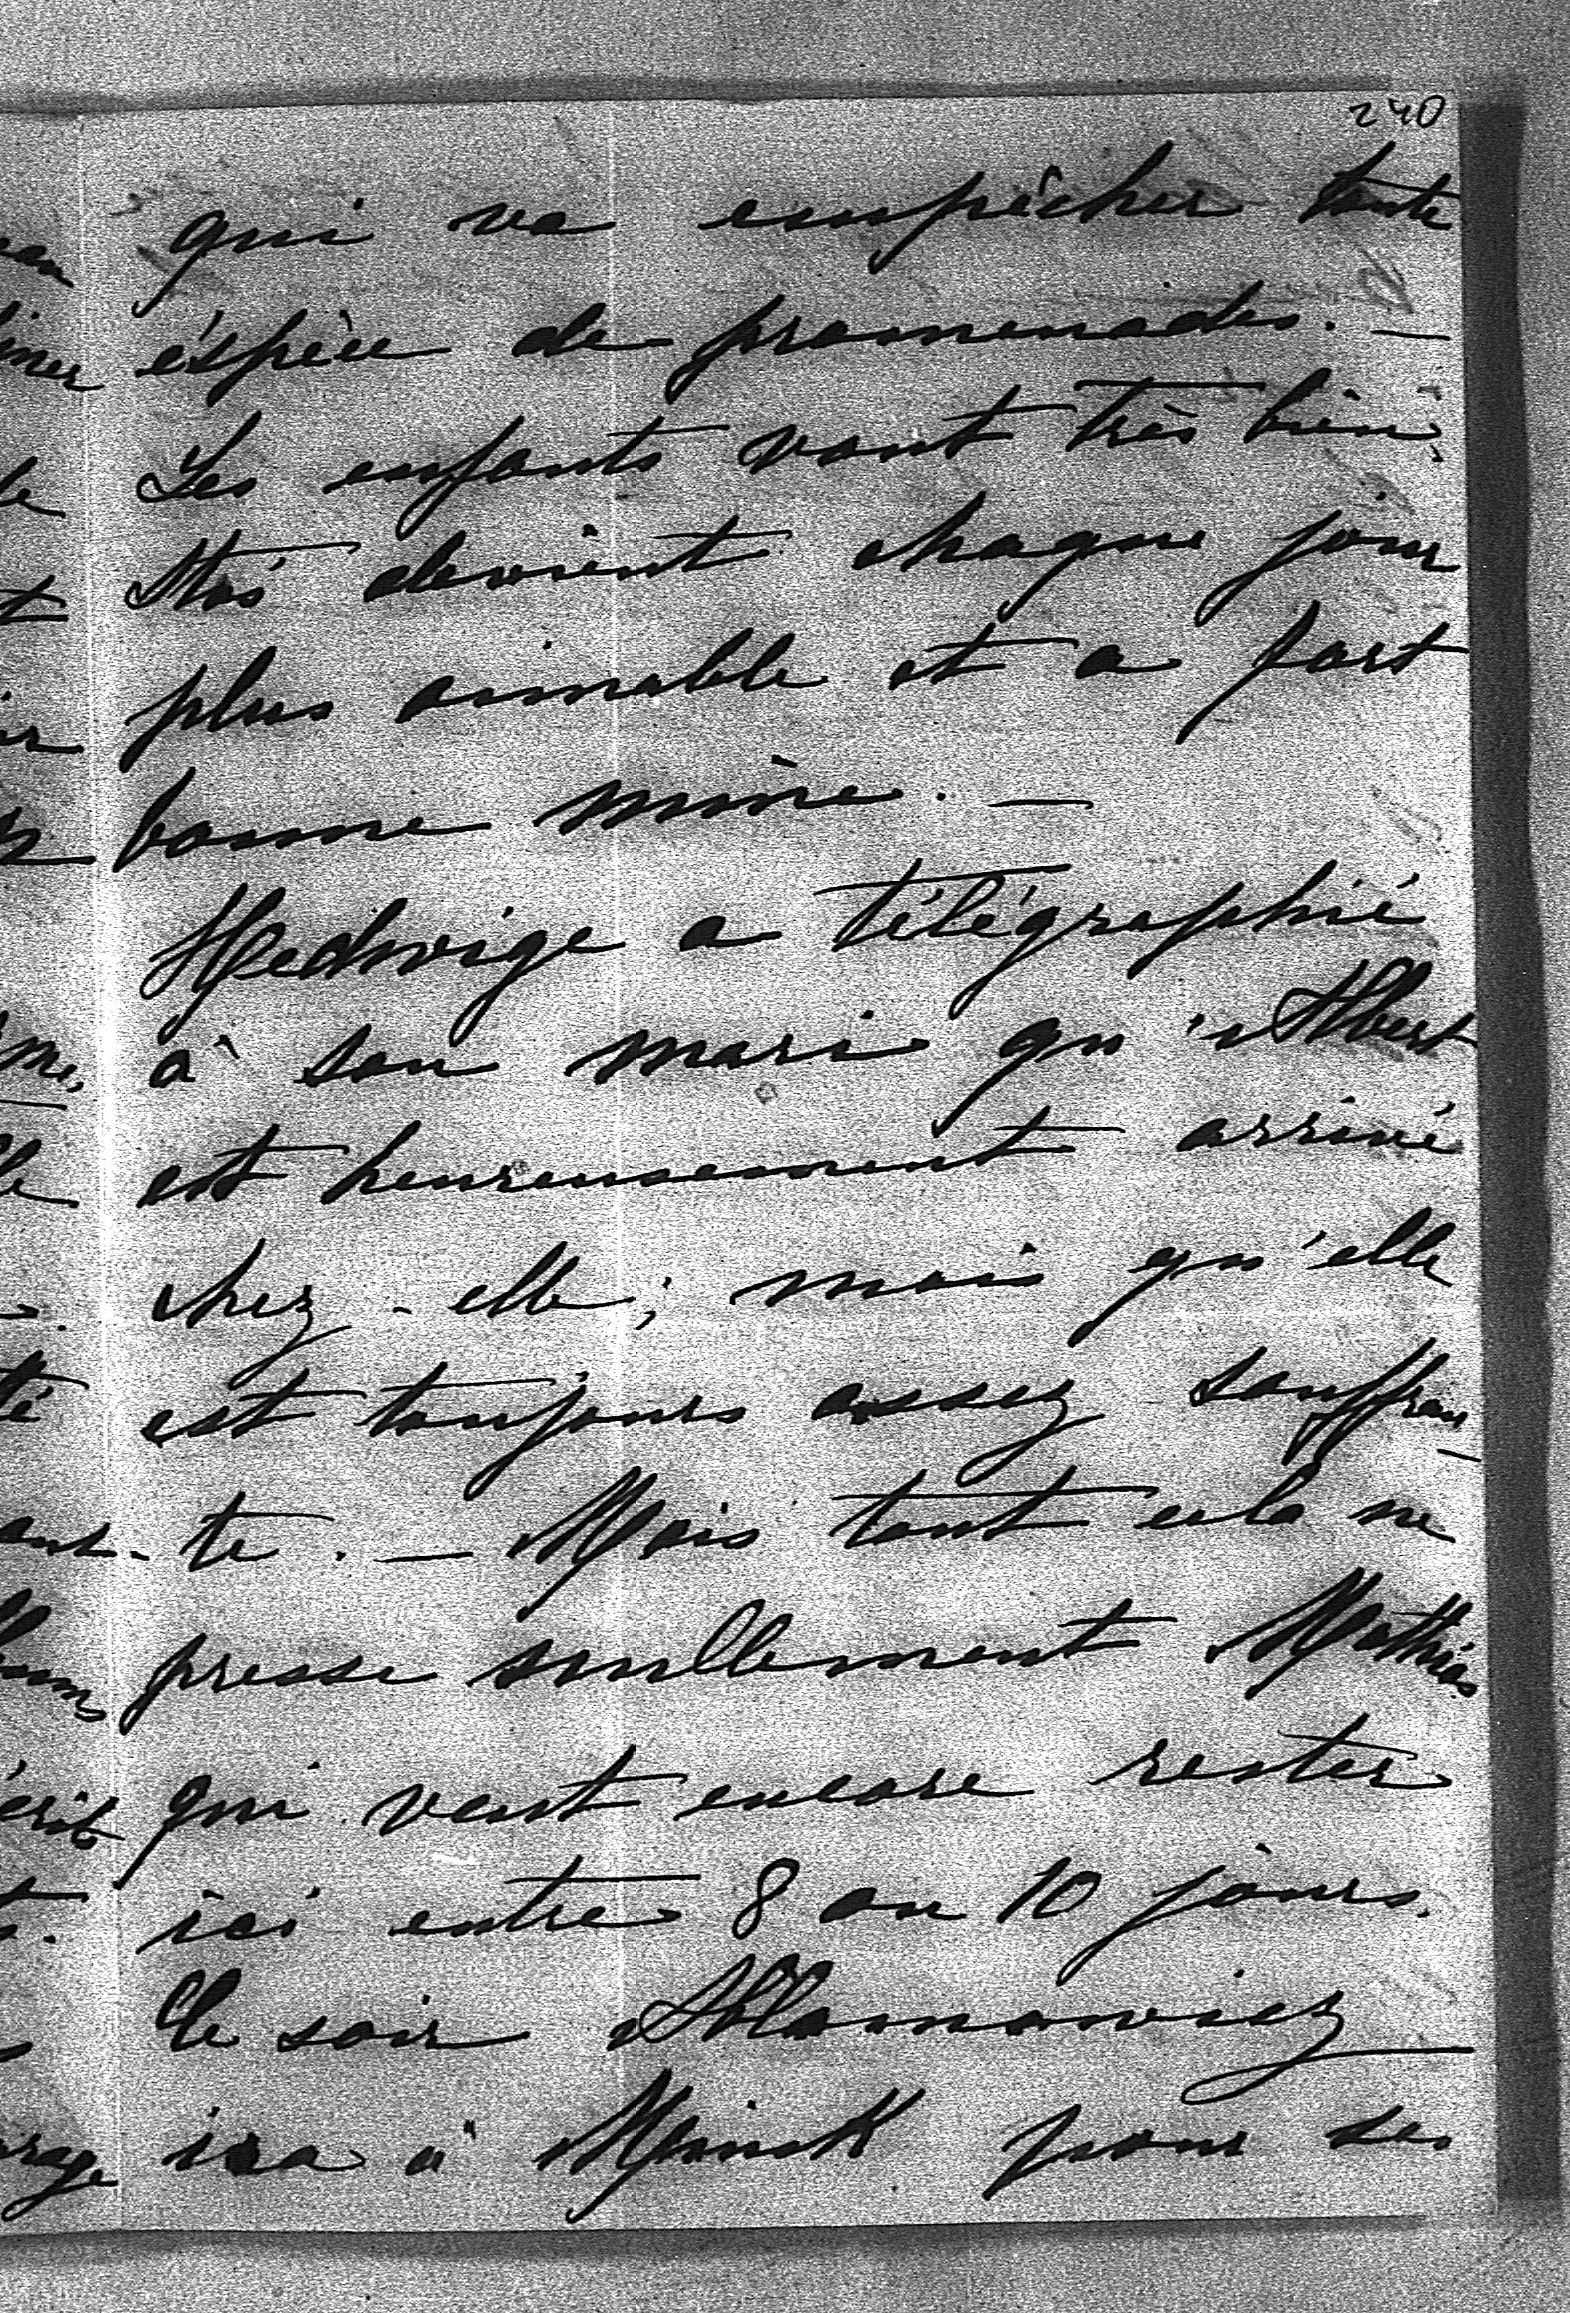 240
qui va empêcher toute
éspèce de promenades. —
Les enfants vont très bien,
Stas devient chaque jour
plus aimable et a fort
bonne mine. —
Hedwige a télégraphié
à son mari qu'Albert
est heureusement arrivé
chez-elle; mais qu'elle
est toujours assez souffran-
te. — Mais tout cela ne
presse nullement Mathias
qui veut encore rester
ici entre 8 ou 10 jours.
Ce soir Ablamowicz
ira à Minsk pour ses